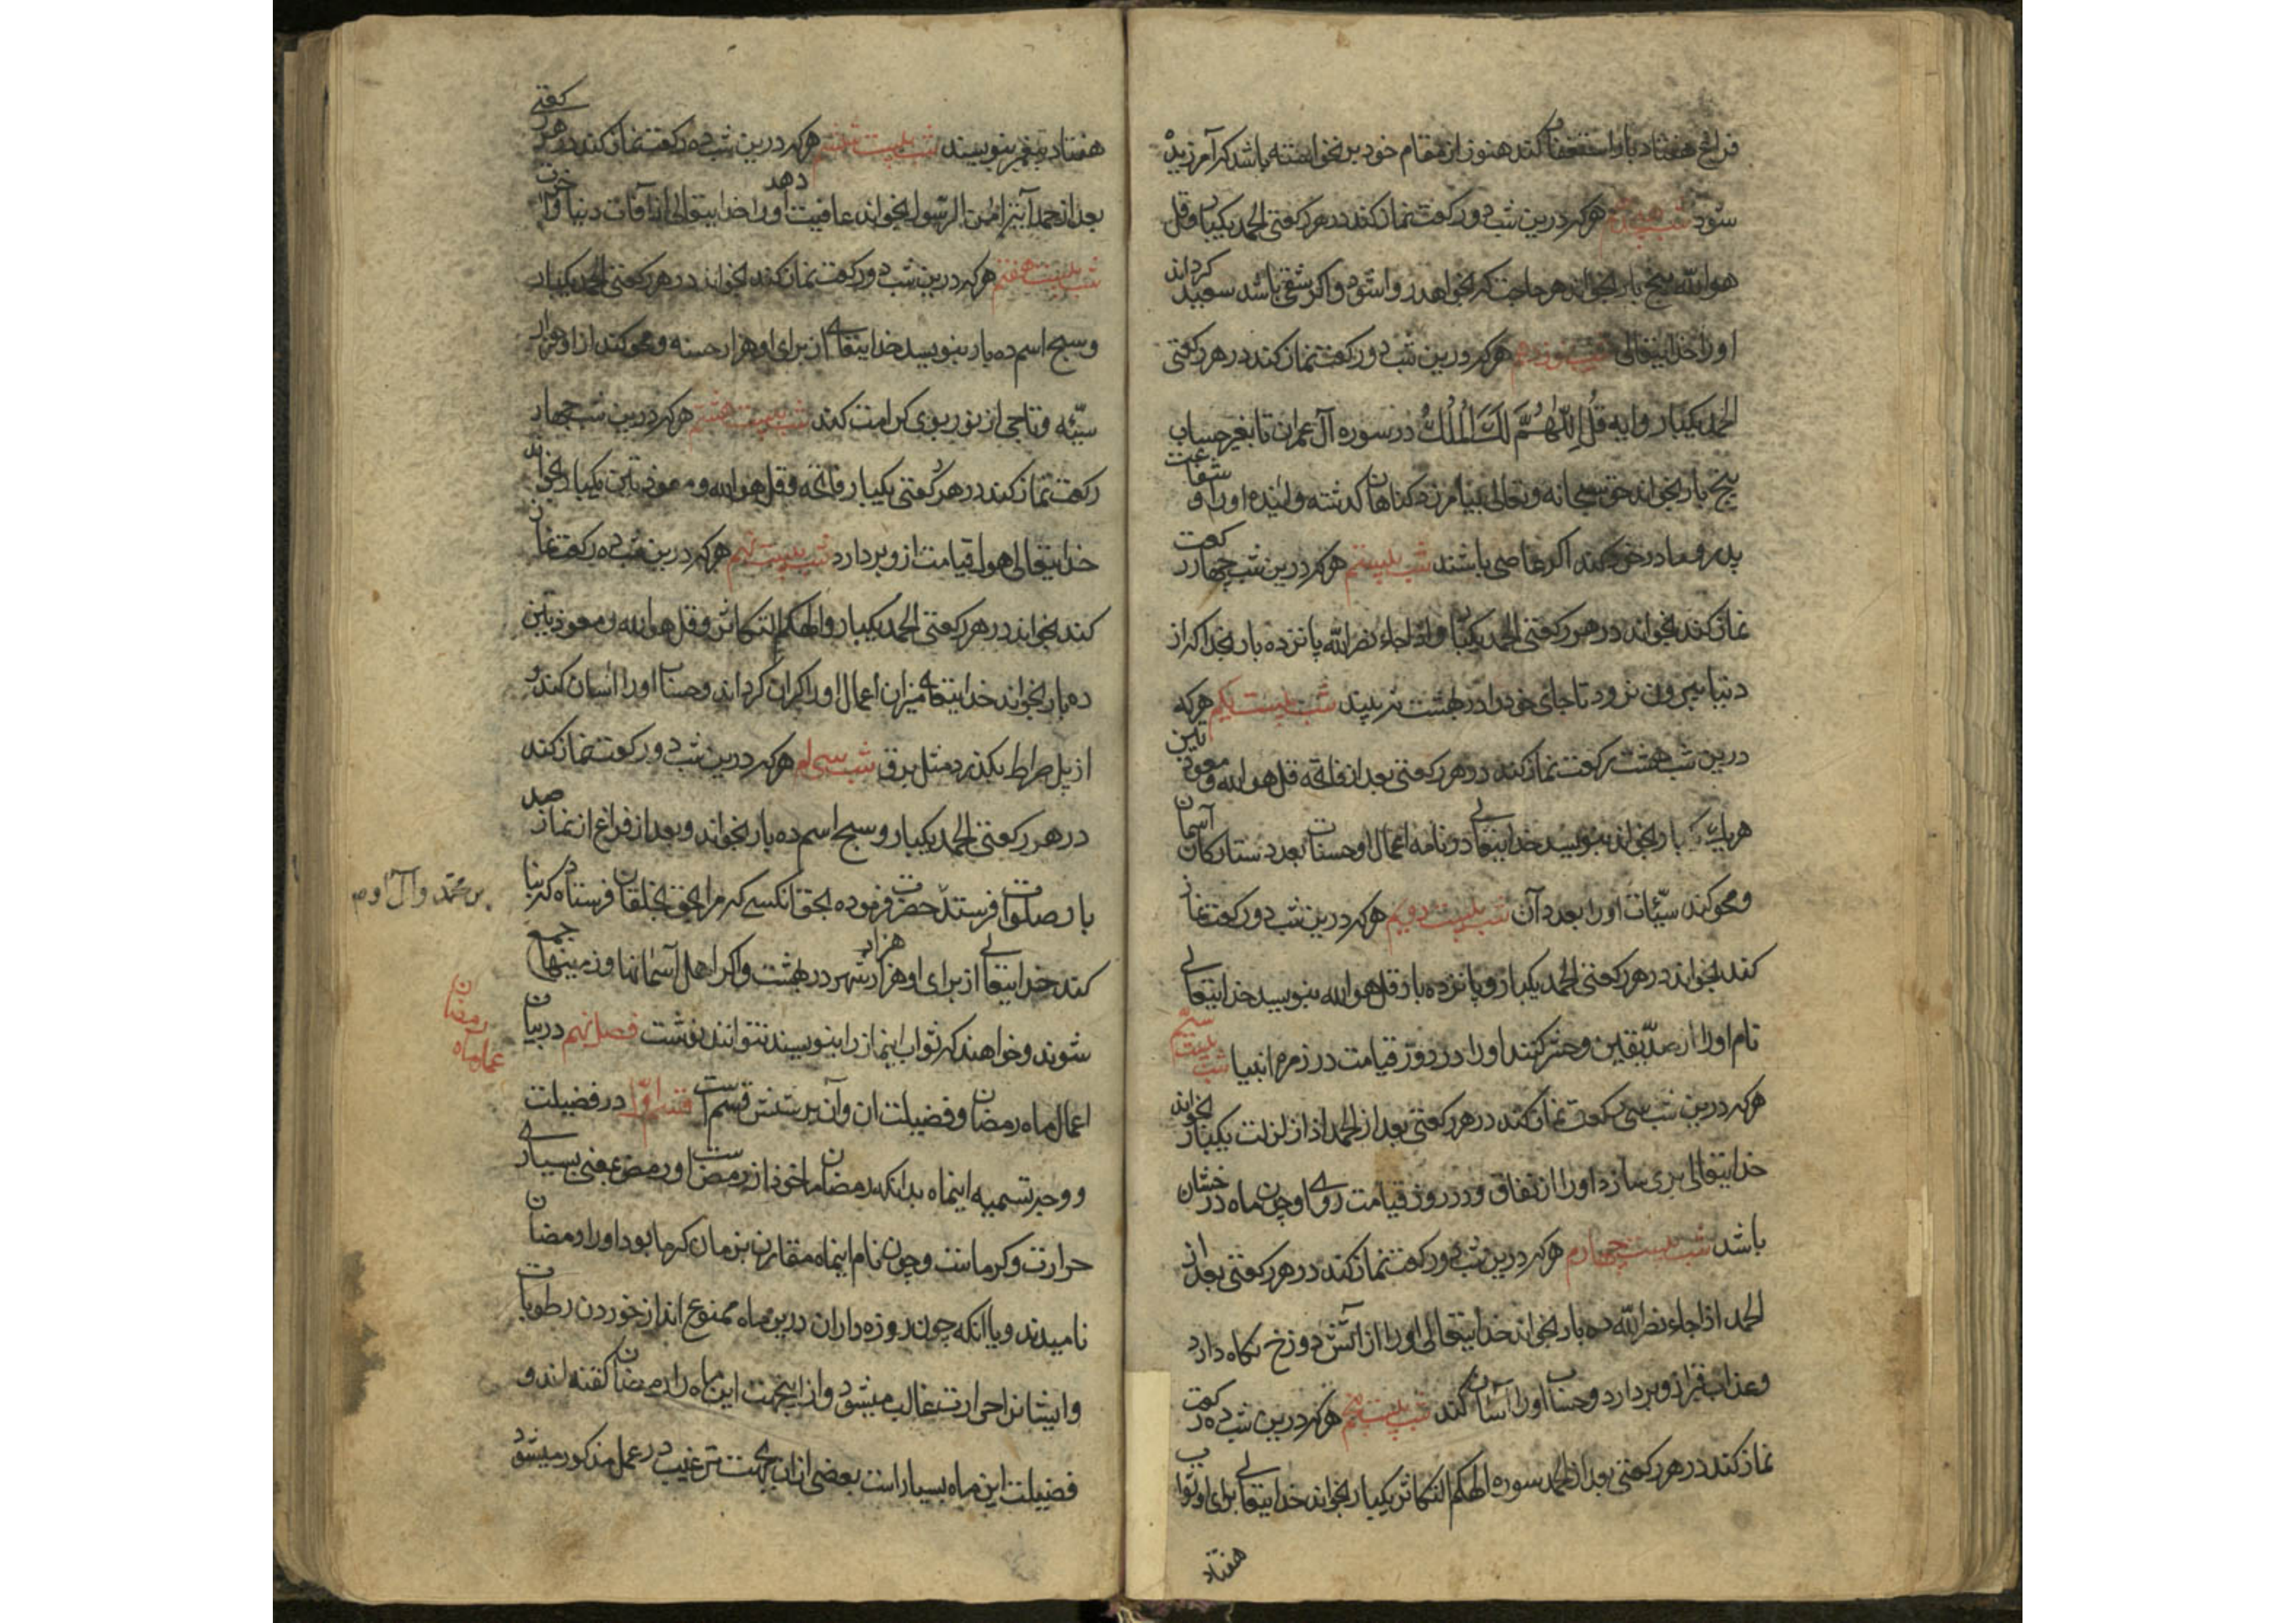 فراغ هفتاد بار استغفار کند هنوز از مقام خود برنخواسته باشد که آمرزیده
شود شب هیجدهم هرکه درین شب دو رکعت نماز کند در هر رکعتی الحمد یکبار و قل
هو الله پنج بار بخواند هر حاجت که بخواهد روا شود و اکر شقی باشد سعید کرداند
او را خدایتعالی شب نوزدهم هرکه درین شب دو رکعت نماز کند در هر رکعتی
الحمد یکبار و ایه قل اللهم لک الملک در سوره آل عمران تا بغیر حساب
پنج بار بخواند حق سبحانه و تعالی بیامرزد کناهان کذشته و اینده او را و شفاعت
پدر و مادر خود کند اکر عاصی باشند شب بیستم هرکه درین شب چهار رکعت
نماز کند بخواند در هر رکعتی الحمد یکبار و اذا جاء نصر الله پانزده بار بخدا که از
دنیا بیرون نرود تا جای خود را در بهشت نه بیند شب بیست یکم هرکه
درین شب هشت رکعت نماز کند در هر رکعتی بعد از فاتحه قل هو الله و معوذتین
هر یک بار بخواند بنویسد خدایتعالی در نامه اعمال او حسنات بعدد ستارکان آسمان
و محو کند سیّئات او را بعدد آن شب بیست دویم هرکه درین شب دو رکعت نماز
کند بخواند در هر رکعتی الحمد یکبار و پانزده بار قل هو الله بنویسد خدایتعالی
نام او را از صدّیقین و حشر کنند او را در روز قیامت در زمره انبیا شب بیست سیّم
هرکه درین شب سی رکعت نماز کند در هر رکعتی بعد از الحمد اذا زلزلت یکبار بخواند
خدایتعالی بری سازد او را از نفاق و در روز قیامت روی او چون ماه درخشان
باشد شب بیست چهارم هرکه درین شب دو رکعت نماز کند در هر رکعتی بعد از
الحمد اذا جاء نصر الله ده بار بخواند خدایتعالی او را از آتش دوزخ نکاه دارد
و عذاب قبر ازو بردارد و حساب او را آسان کند شب بیست پنجم هرکه درین شب ده رکعت
نماز کند در هر رکعتی بعد از الحمد سوره الهکم التکاثر یکبار بخواند خدایتعالی برای او ثواب
هفتاد
هفتاد پیغمبر بنویسند شب بیست ششم هرکه درین شب ده رکعت نماز کند در هر رکعتی
بعد از حمد آیه امن الرسول بخواند عافیت دهد او را خدایتعالی از آفات دنیا و آخرت
شب بیست هفتم هرکه درین شب دو رکعت نماز کند بخواند در هر رکعتی الحمد یکبار
و سبح اسم ده بار بنویسد خدایتعالی از برای او هزار حسنه و محو کند از او هزار
سیّئه و تاجی از نور بوی کرامت کند شب بیست هشتم هرکه درین شب چهار
رکعت نماز کند در هر رکعتی یکبار فاتحه و قل هو الله و معوذتین یکبار بخواند
خدایتعالی اهوال قیامت ازو بردارد شب بیست نهم هرکه درین شب ده رکعت نماز
کند بخواند در هر رکعتی الحمد یکبار و الهکم التکاثر و قل هو الله و معوذتین
ده بار بخواند خدایتعالی میزان اعمال او را کران کرداند و حساب او را اسان کند و
از پل صراط بکذرد مثل برق شب سی ام هرکه درین شب دو رکعت نماز کند
در هر رکعتی الحمد یکبار و سبح اسم ده بار بخواند و بعد از فراغ از نماز صد
بار صلوات فرستد حضرت فرموده بحق آنکسی که مرا بحق بخلقان فرستاده که بنا
بر محمّد و آل او
کند خدایتعالی از برای او هزار هزار شهر در بهشت و اکر اهل آسمانها و زمینها جمع
شوند و خواهند که ثواب اینماز را بنویسند نتوانند نوشت فصل نهم در بیان
اعمال ماه رمضان
اعمال ماه رمضان و فضیلت ان و آن بر شش قسم است قسم اوّل در فضیلت
و وجه تسمیه اینماه بدانکه رمضان ماخوذ از رمض است و رمض بمعنی بسیاری
حرارت و کرماست و چون نام اینماه مقارن بزمان کرما بود او را رمضان
نامیدند و یا انکه چون روزه داران درین ماه ممنوع اند از خوردن رطوبات
و ایشانرا حرارت غالب میشود و از اینجهت این ماه را رمضان کفته اند و
فضیلت این ماه بسیار است بعضی از ان بجهت ترغیب در عمل مذکور میشود